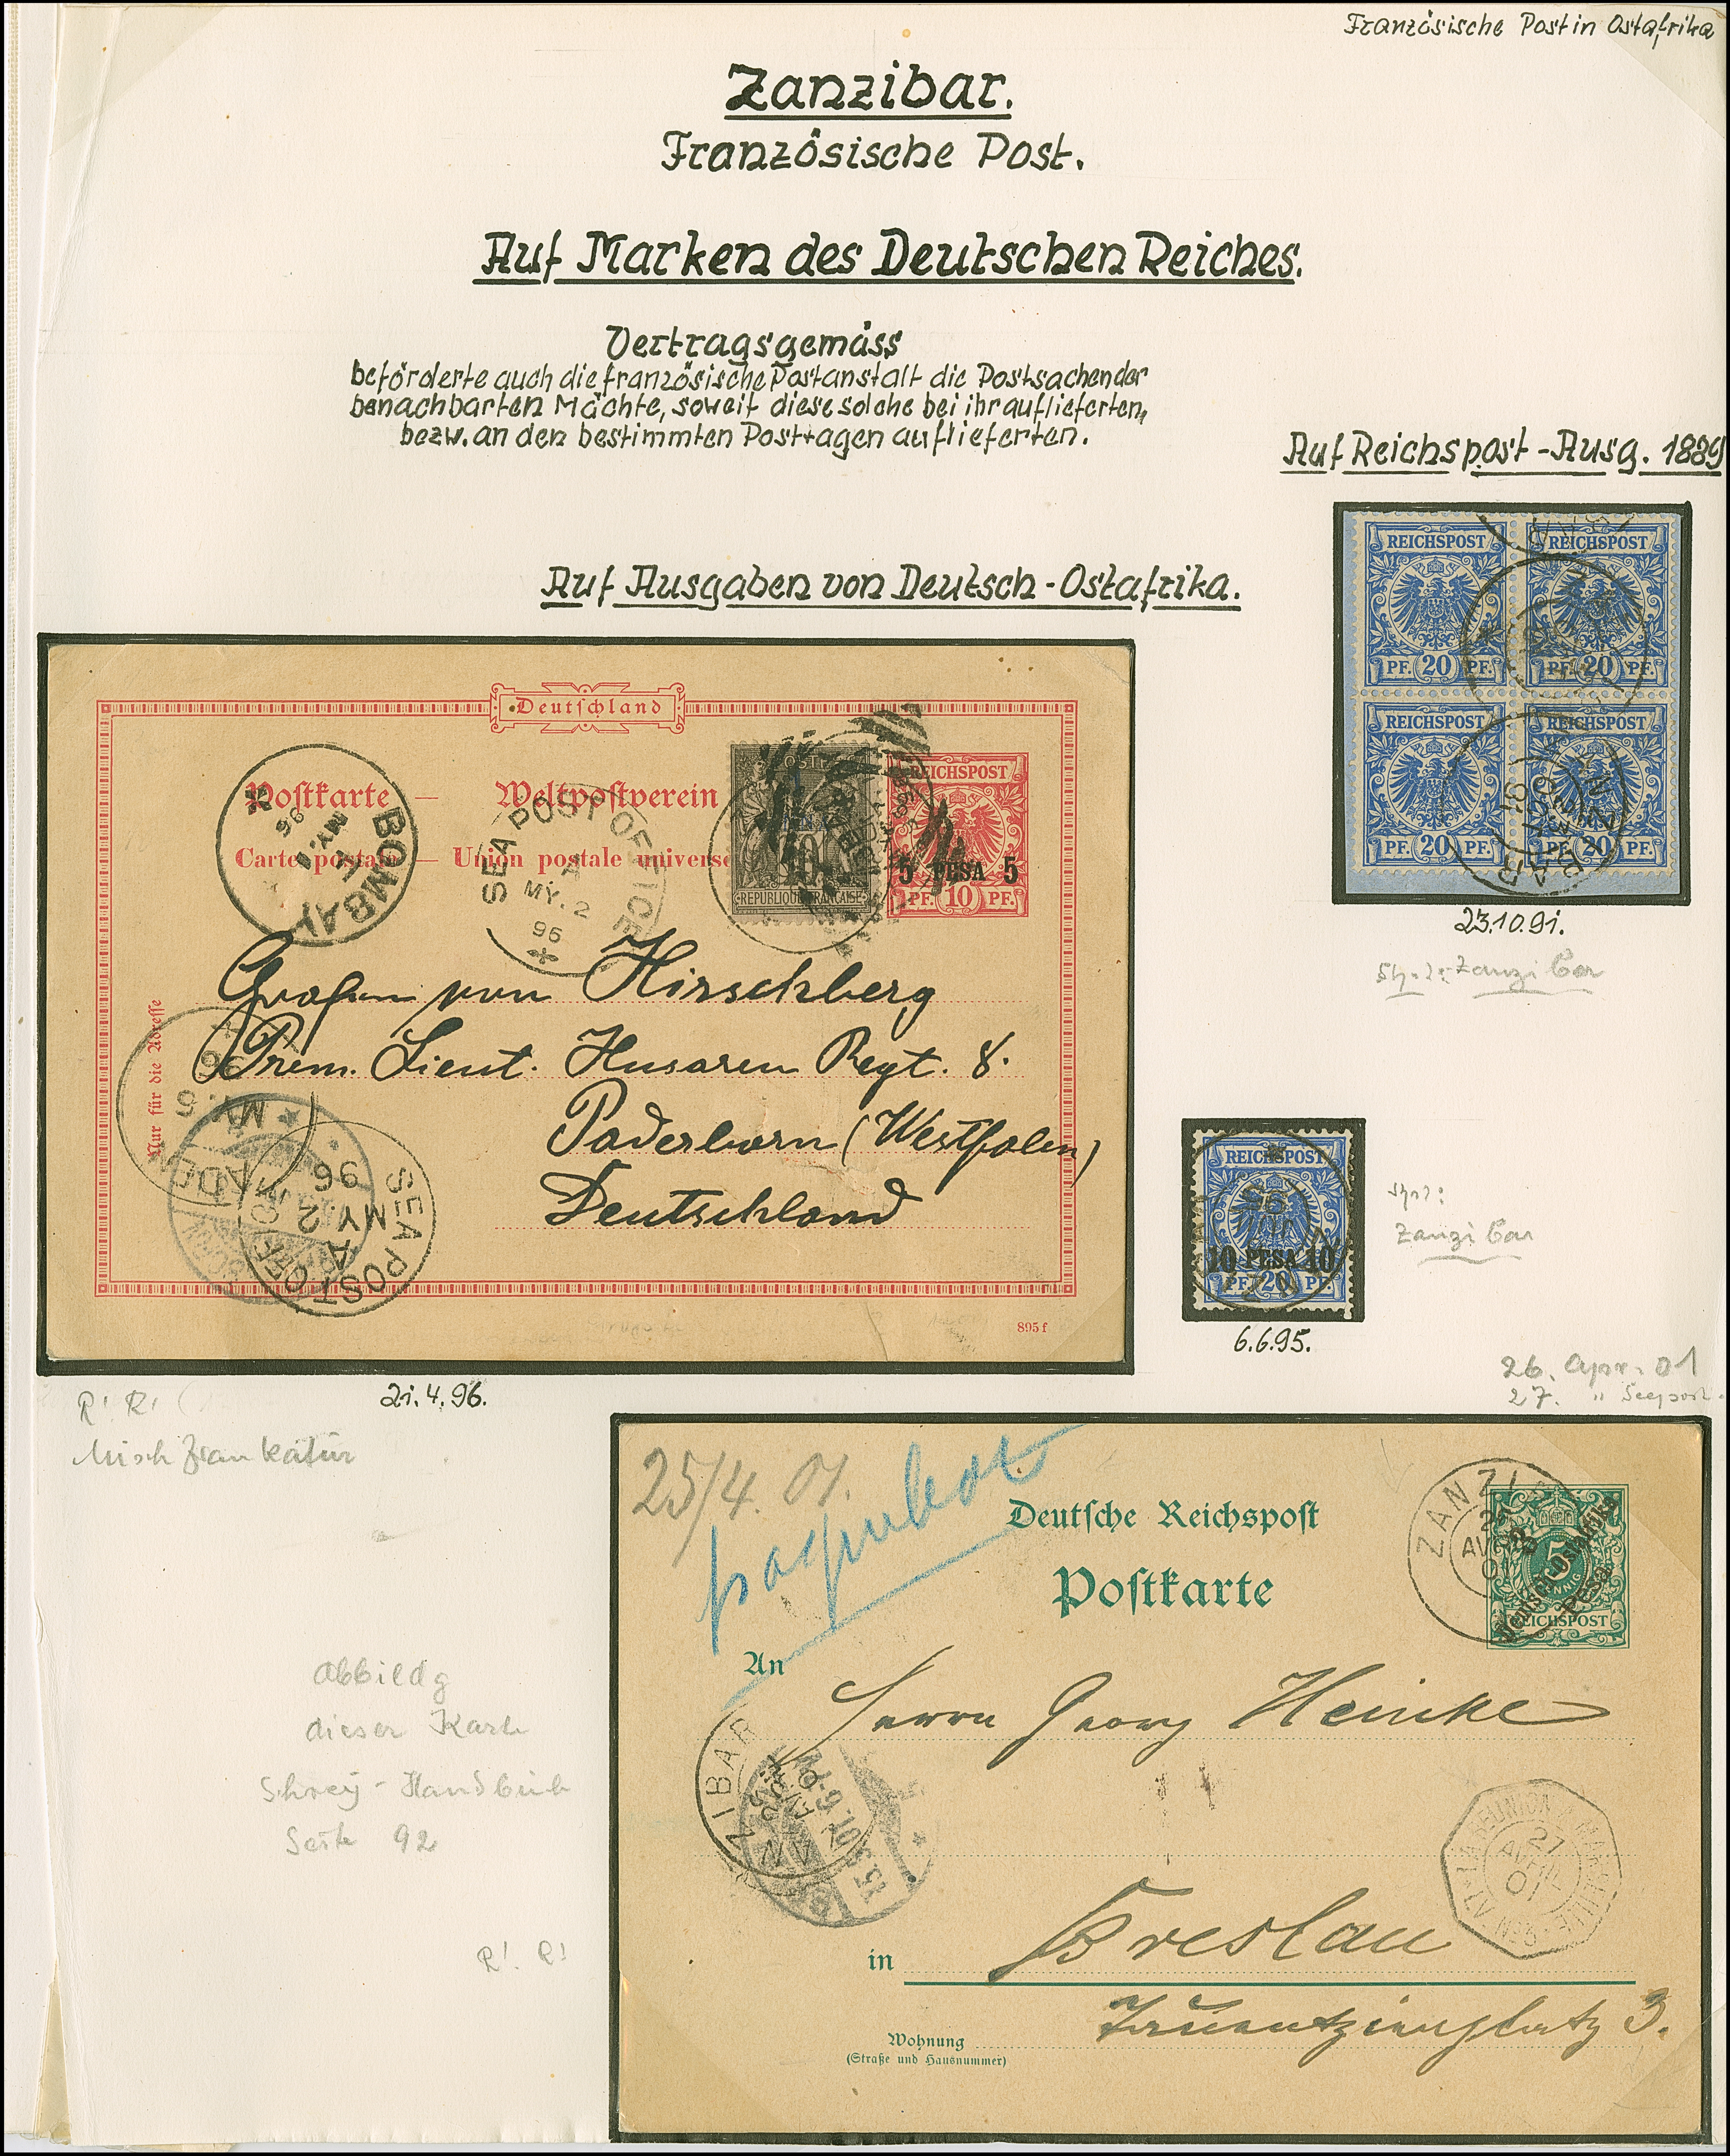 Französische Post in Ostafrika
Zanzibar.
Französische Post.
Auf Marken des Deutschen Reiches.
Vertragsgemäss
beförderte auch die französische Postanstalt die Postsachen der
benachbarten Mächte, soweit diese solche bei ihr auflieferten,
bezw. an den bestimmten Posttagen auflieferten.
Auf Reichspost-Ausg. 1889
REICHSPOST REICHSPOST
PF. 20 PF. PF. 20 PF.
REICHSPOST REICHSPOST
PF. 20 PF. PF. 20 PF.
23.10.91.
Zanzibar
Auf Ausgaben von Deutsch-Ostafrika.
Deutschland
Postkarte — Weltpostverein
Carte postale — Union postale universe
REICHSPOST
5 PESA 5
PF. 10 PF.
10
REPUBLIQUE FRANCAISE
BOMBAY
MY. 1
96
SEA POST OFFICE
A
MY. 2
96
Grafen von Hirschberg
Prem. Lieut. Husaren Regt. 8.
Paderborn (Westfalen)
Deutschland
Nur für die Adresse
ADEN
MY. 6
SEA POST OFF
A
MY. 2
96
895 f
21.4.96.
R! R!
Mischfrankatur
REICHSPOST
10 PESA 10
PF. 20 PF.
6.6.95.
Zanzibar
26. Apr. 01
27. " Seepost
25/4. 01.
paquebot
Deutsche Reichspost
Postkarte
5
Deutsch-Ostafrika
Pesa
REICHSPOST
An
Herrn Georg Heinke
ZANZIBAR
15.5.01.6-7N
LA REUNION A MARSEILLE
27
AVRIL
01
in Breslau
Tauentzienplatz 3.
Wohnung
(Straße und Hausnummer)
Abbildg
dieser Karte
Schrey-Handbuch
Seite 92
R! R!